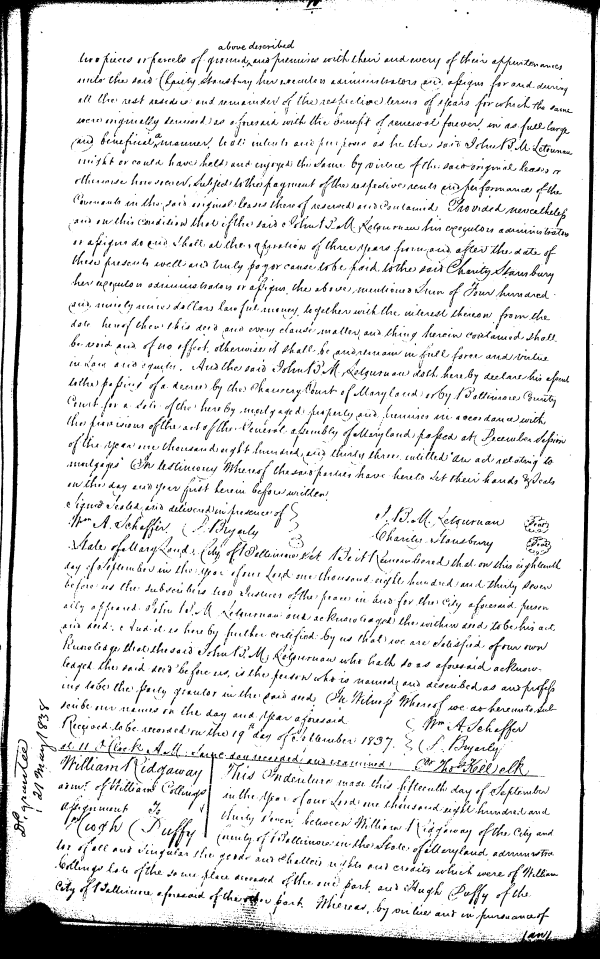 above described
two pieces or parcels of ground, and premises with their and every of their appurtenances
unto the said Charity Stansbury her executors administrators and assigns for and during
all the rest residue and remainder of the respective terms of years for which the same
were originally demised as aforesaid with the benefit of renewal forever, in as full large
and beneficial a manner, to all intents and purposes as he the said John B. M. Letournau
might or could have held and enjoyed the same by virtue of the said original leases or
otherwise howsoever, subject to the payment of the respective rents and performance of the
Covenants in the said original leases thereof reserved and contained. Provided nevertheless
and on this condition that if the said John B. M. Letournau his executors administrators
or assigns do and shall at the expiration of three years from and after the date of
these presents well and truly pay or cause to be paid to the said Charity Stansbury
her executors administrators or assigns, the above mentioned sum of Four hundred
and ninety nine dollars lawful money, together with the interest thereon from the
date hereof then this deed and every clause matter and thing herein contained shall
be void and of no effect, otherwise it shall be and remain in full force and virtue
in Law and equity. And the said John B. M. Letournau doth hereby declare his assent
to the passing of a decree by the Chancery Court of Maryland or by Baltimore County
Court for a sale of the hereby mortgaged property and premises in accordance with
the provisions of the act of the General assembly of Maryland passed at December Session
of the year one thousand eight hundred and thirty three, entitled "An act relating to
mortgages" In testimony Whereof the said parties have hereto set their hands & Seals
on the day and year first herein before written.
Signed Sealed and delivered in presence of } J. B. M. Letournau (Seal)
Wm A. Schaffer, S. Byerly } Charity Stansbury (Seal)
State of Maryland, City of Baltimore Set Be it Remembered that on this eighteenth
day of September in the year of our Lord one thousand eight hundred and thirty seven
before us the subscribers two Justices of the peace in and for the City aforesaid person
ally appeared John B. M. Letournau and acknowledged the within deed to be his act
and deed. And it is hereby further certified by us that we are satisfied of our own
knowledge that the said John B. M. Letournau who hath so as aforesaid acknow-
ledged the said deed before us, is the person who is named, and described as and profess
ing to be the party grantor in the said deed. In Witness Whereof we do hereunto sub
scribe our names on the day and year aforesaid } Wm A. Schaffer
Received to be recorded on the 19th day of September 1837. } S. Byerly
at 11 O'Clock A.M. Same day recorded and examined Per Tho Kell clk
Dd grantee
21 May 1838
William Ridgaway
admr. of William Collings
assignment To
Hugh Duffy
This Indenture made this fifteenth day of September
in the Year of our Lord one thousand eight hundred and
thirty seven, between William Ridgaway of the City and
County of Baltimore in the State of Maryland, administra
tor of all and singular the goods and chattels rights and credits which were of William
Collings late of the same place deceased of the one part, and Hugh Duffy of the
City of Baltimore aforesaid of the other part. Whereas, by virtue and in pursuance of
an